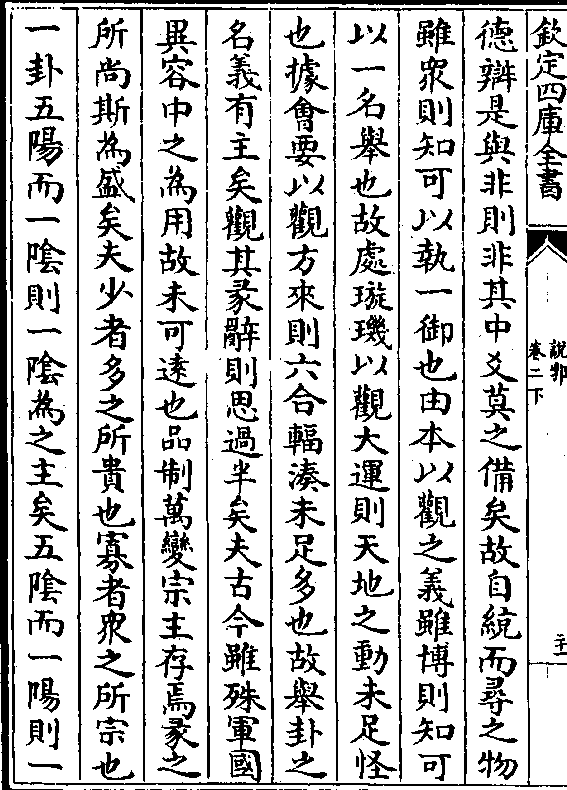 欽定四庫全書
說郛
卷二下
德辯是與非則非其中爻莫之備矣故自統而尋之物
雖衆則知可以執一御也由本以觀之義雖博則知可
以一名舉也故處璇璣以觀大運則天地之動未足怪
也據會要以觀方來則六合輻湊未足多也故舉卦之
名義有主矣觀其彖辭則思過半矣夫古今雖殊軍國
異容中之為用故未可遠也品制萬變宗主存焉彖之
所尚斯為盛矣夫少者多之所貴也寡者衆之所宗也
一卦五陽而一陰則一陰為之主矣五陰而一陽則一